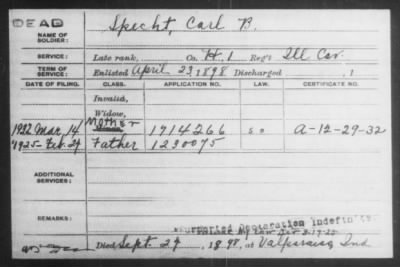 DEAD
NAME OF SOLDIER: Specht, Carl B.
SERVICE: Late rank, Co. H, 1 Reg't Ill Cav.
TERM OF SERVICE: Enlisted April 23, 1898 Discharged , 1
DATE OF FILING. CLASS. APPLICATION NO. LAW. CERTIFICATE NO.
Invalid,
Widow,
1922 Mar, 14 Mother 1914266 A-12-29-32
1925-Feb. 24 Father 1230075
ADDITIONAL SERVICES:
REMARKS:
Declaration Indefinite
Died Sept. 27, 1898, at Valparaiso, Ind